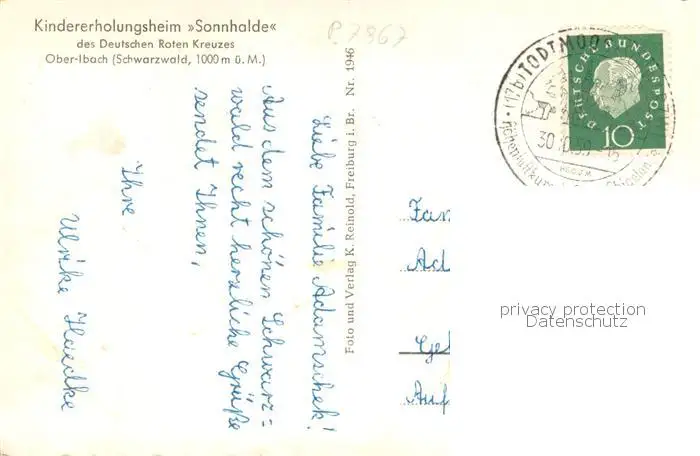 Kindererholungsheim »Sonnhalde«
des Deutschen Roten Kreuzes
Ober-Ibach (Schwarzwald, 1000 m ü. M.)
P.7867
Liebe Familie Adamschek!
Aus dem schönen Schwarz=
wald recht herzliche Grüße
sendet Ihnen,
Ihre
Ulrike Haedke
Foto und Verlag K. Reinold, Freiburg i. Br. Nr. 1946
(17b) TODTMOO
30.10.59
DEUTSCHE BUNDESPOST
10
Fa
Ad
Ge
Auf
privacy protection
Datenschutz